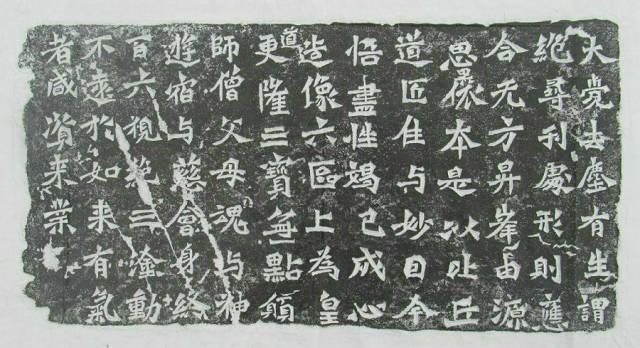 大覺去塵有生謂
絕尋刊處形則應
合无方昇峯由源
思攘本是以比丘
道匠住与妙目今
悟盡性竭己成心
造像六區上為皇
道更隆三寶無點願
師僧父母魂与神
遊宿与慈會身終
百六視絕三塗動
不遠於如来有氣
者咸資来業